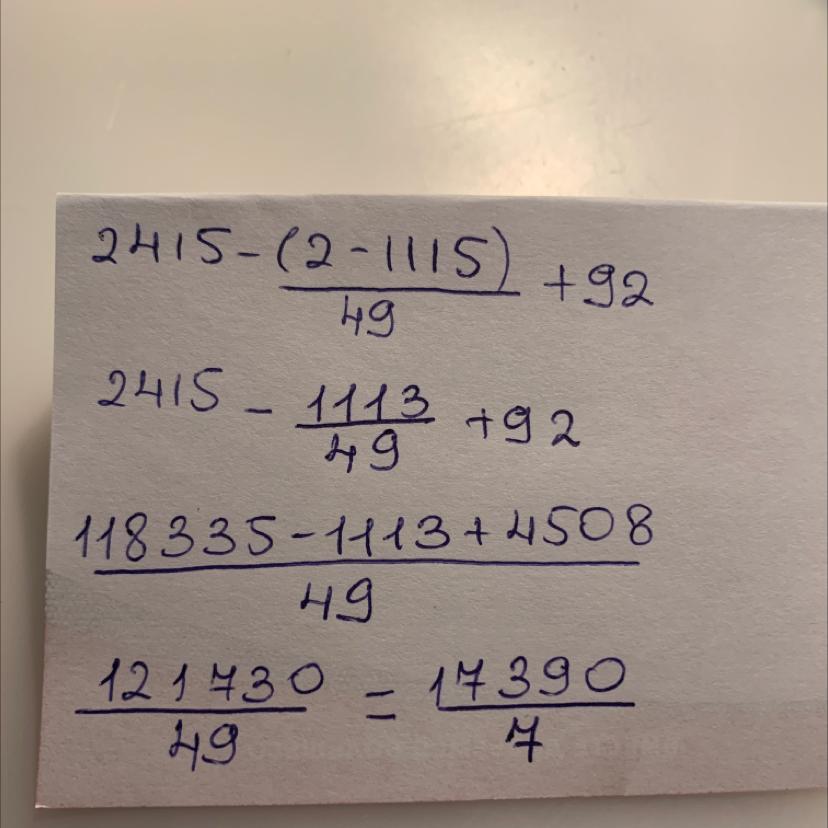 2415-(2-1115)/49 +92
2415 - 1113/49 +92
118335-1113+4508/49
121730/49 = 17390/7